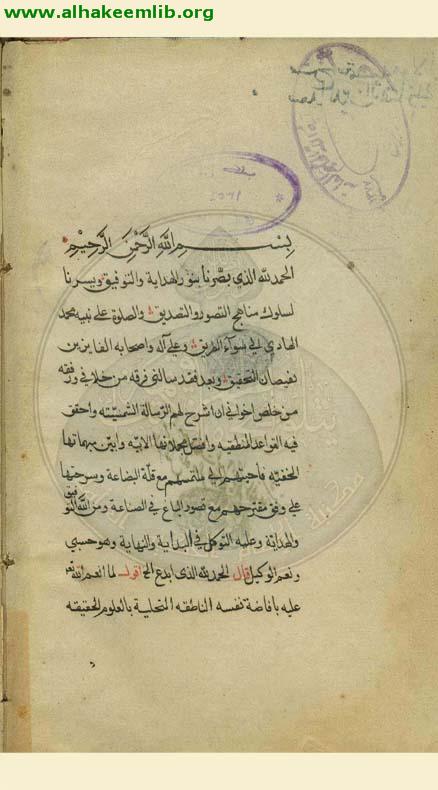 www.alhakeemlib.org
بسم الله الرحمن الرحيم
الحمد لله الذي بصرنا بنور الهداية والتوفيق ويسرنا
لسلوك مناهج التصور والتصديق والصلوة على نبيه محمد
الهادي الى سواء الطريق وعلى آله واصحابه الفايزين
بفيضان التحقيق وبعد فقد سالنى فرقه من خلانى ورفقه
من خلص اخوانى ان اشرح لهم الرسالة الشمسيته واحقق
فيه القواعد المنطقيه وافصل مجملاتها الابيه وابين مبهماتها
الخفيه فاجبتهم الى ملتمسهم مع قلة البضاعة وسرحتها
على وفق مقترحهم مع قصور الباع في الصناعة ومن الله التوفيق
والهداية وعليه التوكل في البداية والنهاية وهو حسبي
ونعم الوكيل قال الحمد لله الذى ابدع الخ اقول لما انعم الله تعه
عليه بافاضة نفسه الناطقه المتحلية بالعلوم الحقيقه